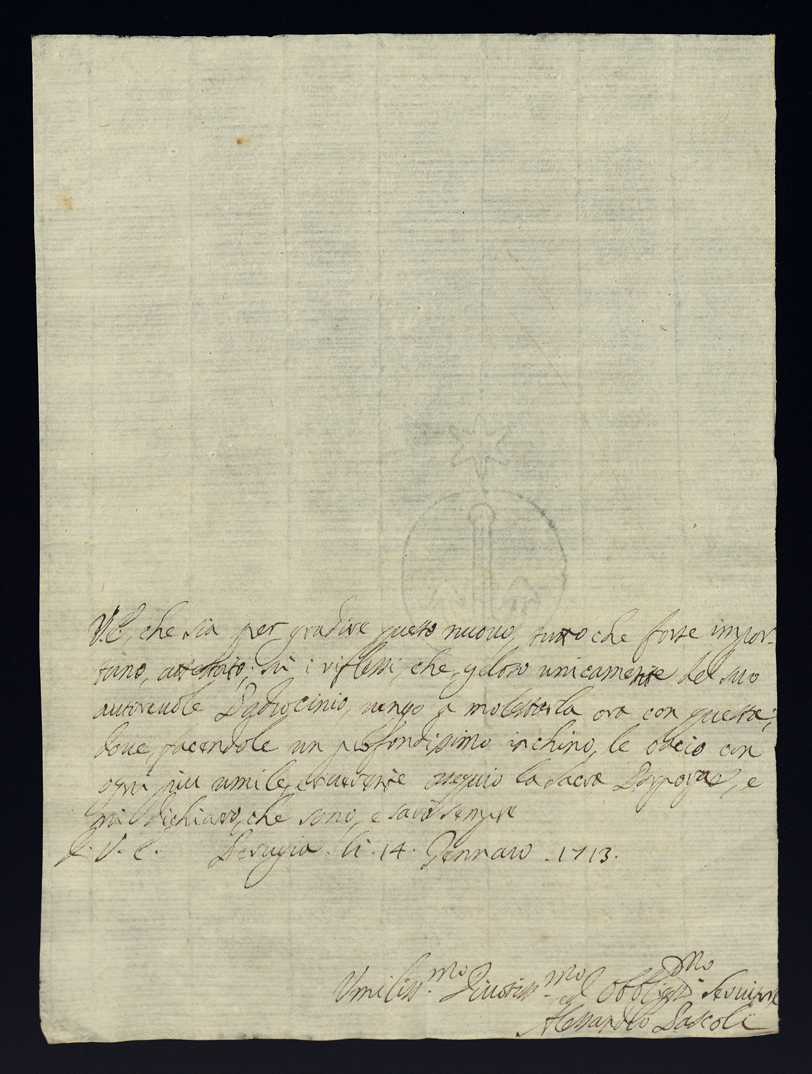 V. E., che sia per gradire questo nuovo, tutto che forse impor-
tuno, attestato; su i riflessi, che geloso unicamente del suo
autorevole Padrocinio, vengo a molestarla ora con questa;
dove facendole un profondissimo inchino, le bacio con
ogni più umile, e riverente ossequio la sacra Porpora, e
mi dichiaro, che sono, e sarò sempre
V. E. Perugia li 14. Gennaro 1713.
Umiliss.mo Divotiss.mo ed Obbligat.mo Servitore
Alessandro Pascoli